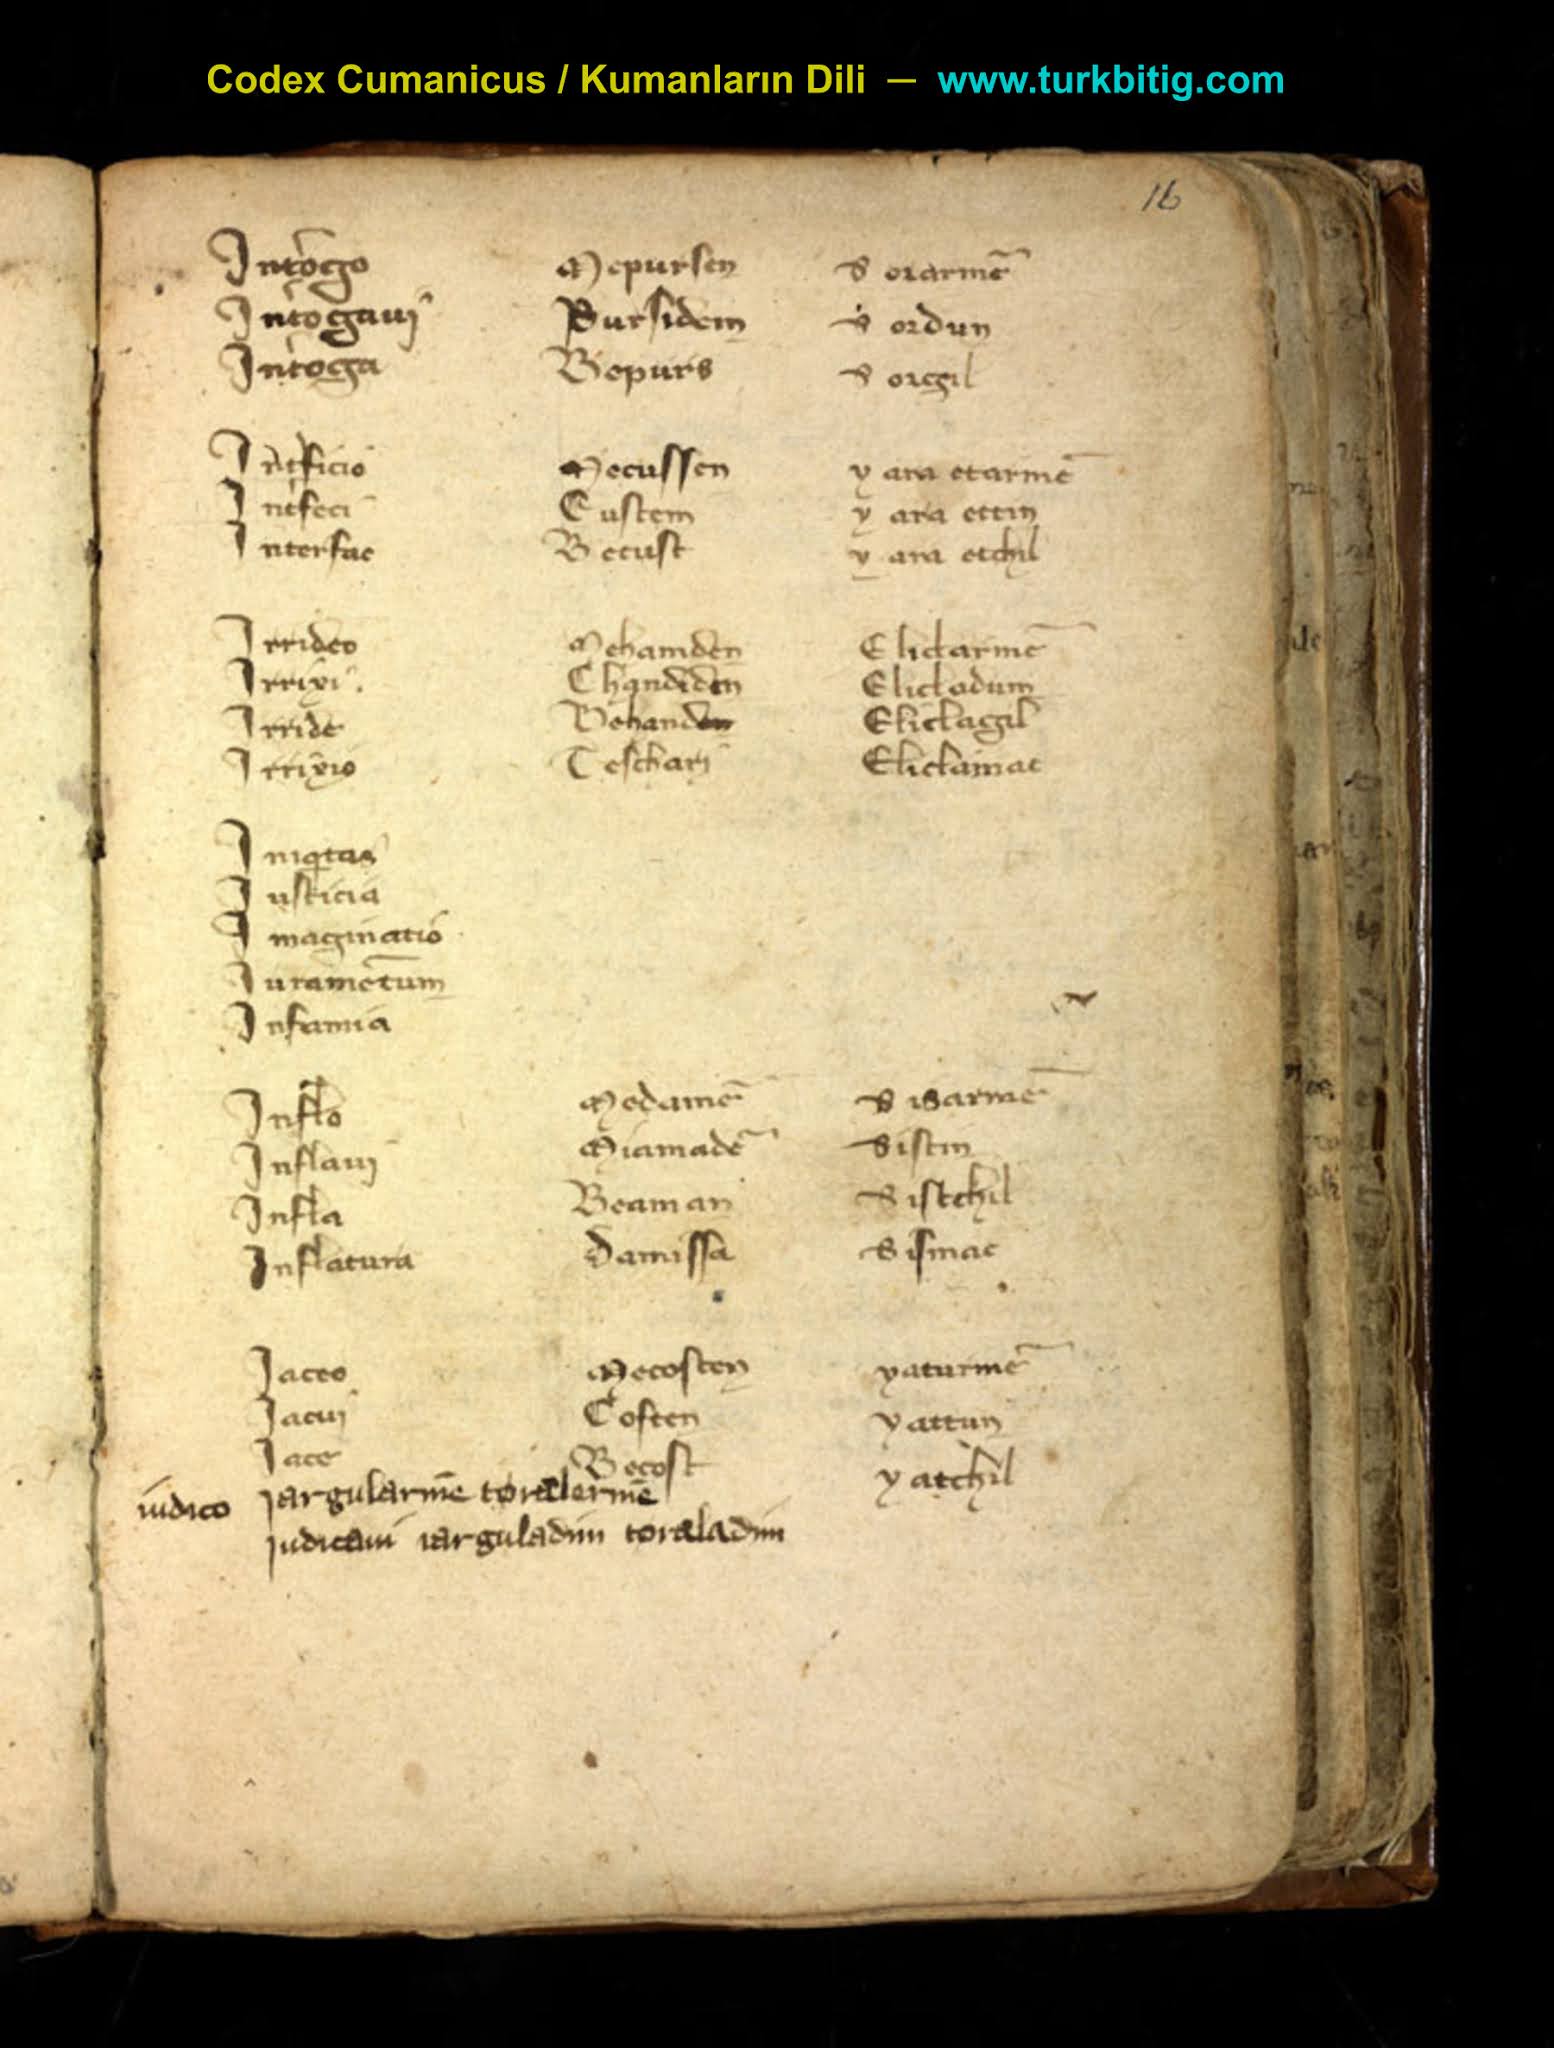 Codex Cumanicus / Kumanların Dili — www.turkbitig.com
16
Int̄ogo Mepursen Sorarmē
Int̄ogaui Pursidem Sordun
Int̄oga Bepurs Sorgil
Int̄ficio Mecussen yara etarmē
Int̄feci Custem yara ettin
Interfac Becust yara etchil
Irrideo Mehamden Elictarmē
Irrixi Chandiden Elictadum
Irride Behanden Elictagil
Irrixio Teschari Elictamac
Iniqtas
Iusticia
Imaginatio
Iuramētum
Infamia
Inflo Medamē Sisarmē
Inflaui Miamadē Sistin
Infla Beaman Sistchil
Inflatura Damissa Sismac
Iaceo Mecosten yaturmē
Iacui Costen yattun
Iace Becost yatchil
iudico iargularmē toralermē
iudicaui iarguladim toraladim